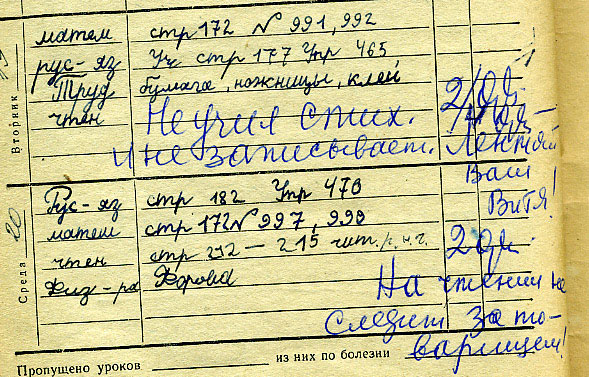 Вторник
матем стр 172 № 991, 992
рус-яз Уч стр 177 Упр 465
Труд бумага, ножницы, клей
чтен Не учил стих.
и не записывает. Лентяй
Ваш
Витя!
Среда 20
Рус-яз стр 182 Упр 478
матем стр 172 № 997, 998
чтен стр 212 – 215 чит.
Физ-ра Форма
На чтении не
следит за то-
варищем!
Пропущено уроков из них по болезни